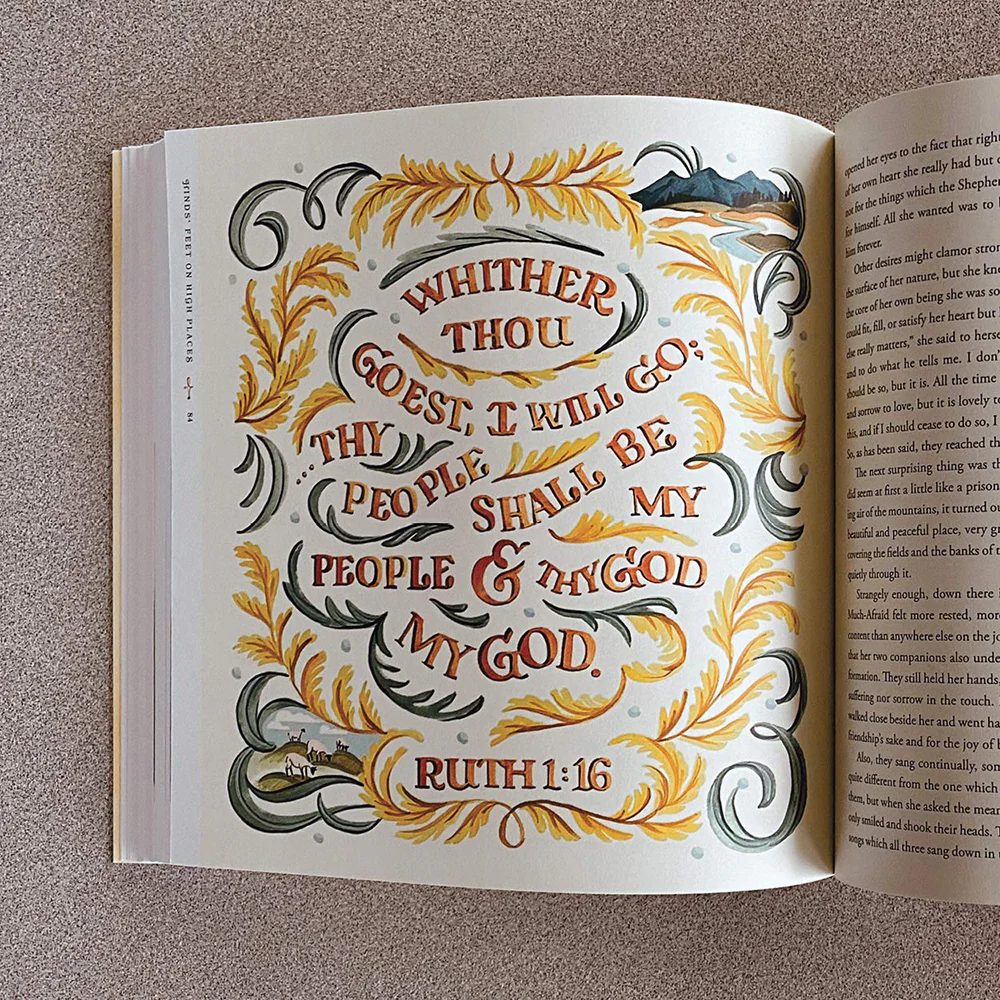 HINDS' FEET ON HIGH PLACES 84
WHITHER
THOU
GOEST, I WILL GO;
THY
PEOPLE
SHALL BE
MY
PEOPLE & THY GOD
MY GOD.
RUTH 1:16
opened her eyes to the fact that right
of her own heart she really had but
not for the things which the Shepher
for himself. All she wanted was to
him forever.
Other desires might clamor stron
the surface of her nature, but she kn
the core of her own being she was so
could fit, fill, or satisfy her heart but
else really matters," she said to herse
and to do what he tells me. I don'
should be so, but it is. All the time
and sorrow to love, but it is lovely to
this, and if I should cease to do so, I
So, as has been said, they reached th
The next surprising thing was th
did seem at first a little like a prison
ing air of the mountains, it turned ou
beautiful and peaceful place, very gr
covering the fields and the banks of t
quietly through it.
Strangely enough, down there i
Much-Afraid felt more rested, mor
content than anywhere else on the jo
that her two companions also unde
formation. They still held her hands,
suffering nor sorrow in the touch.
walked close beside her and went ha
friendship's sake and for the joy of b
Also, they sang continually, som
quite different from the one which
them, but when she asked the mean
only smiled and shook their heads. T
songs which all three sang down in t